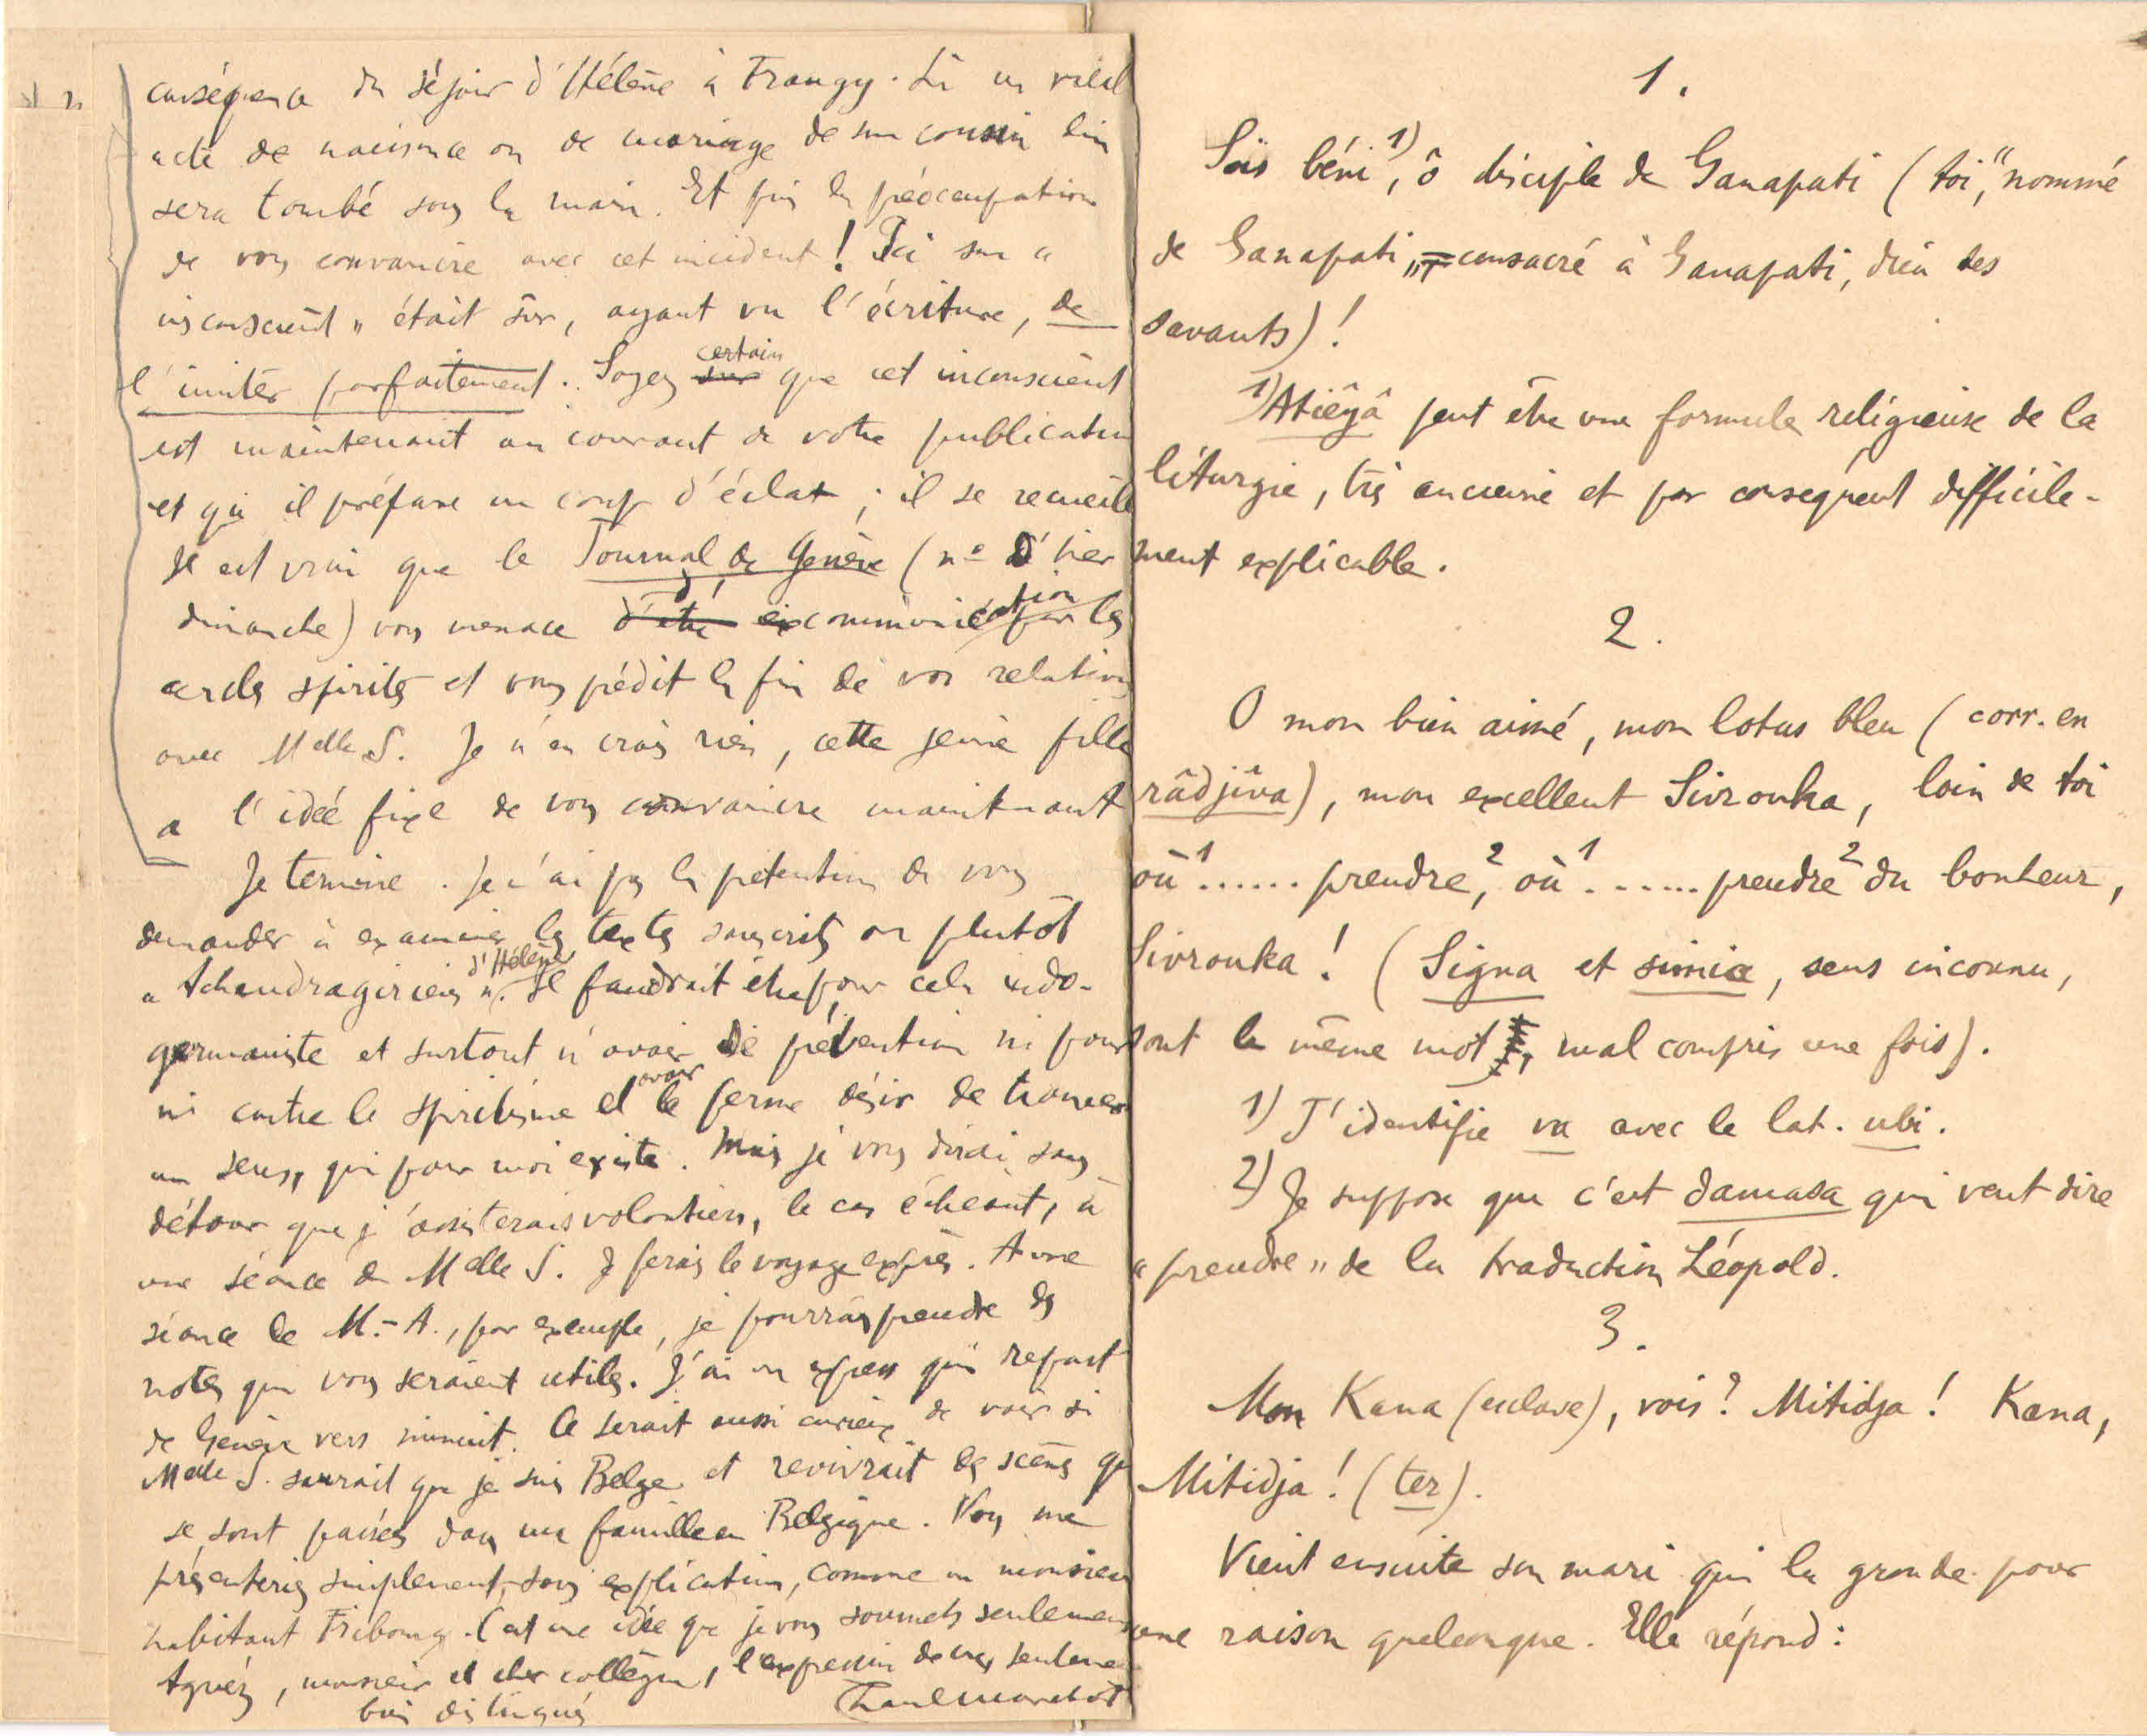 conséquence du séjour d'Hélène à Frangy. Là un vieil
acte de naissance ou de mariage de son cousin lui
sera tombé sous la main. Et puis la préoccupation
de vous convaincre avec cet incident ! Ici son «
inconscient » était sûr, ayant vu l'écriture, de
l'imiter parfaitement. Soyez sûr certain que cet inconscient
est maintenant au courant de votre publication
et qu'il prépare un coup d'éclat ; il se recueille
Il est vrai que le Journal de Genève (no d'hier
dimanche) vous menace d'être excommunication par les
cercles spirites et vous prédit la fin de vos relations
avec Melle S. Je n'en crois rien, cette jeune fille
a l'idée fixe de vous convaincre maintenant
Je termine. Je n'ai pas la prétention de vous
demander à examiner les textes sanscrits ou plutôt
« tchandragiriens » d'Hélène. Il faudrait être pour cela indo-
germaniste et surtout n'avoir de prévention ni pour
ni contre le spiritisme et avoir le ferme désir de trouver
un sens, qui pour moi existe. Mais je vous dirai sans
détour que j'assisterais volontiers, le cas échéant, à
une séance de Melle S. Je ferais le voyage exprès. A une
séance de M.-A., par exemple, je pourrais prendre des
notes qui vous seraient utiles. J'ai un express qui repart
de Genève vers minuit. Ce serait aussi curieux de voir si
Melle S. saurait que je suis Belge et revivrait des scènes qui
se sont passées dans ma famille en Belgique. Vous me
présenteriez simplement, sans explication, comme un monsieur
habitant Fribourg. C'est une idée que je vous soumets seulement
Agréez, monsieur et cher collègue, l'expression de mes sentiments
bien distingués
Paul Marchot
1.
Sois béni 1), ô disciple de Ganapati (toi, "nommé
de Ganapati „ = consacré à Ganapati, dieu des
savants) !
1) Atiêyâ peut être une formule religieuse de la
liturgie, très ancienne et par conséquent difficile-
ment explicable.
2.
O mon bien aimé, mon lotus bleu (corr. en
râdjîva), mon excellent Sivrouka, loin de toi
où 1 ...... prendre 2, où 1 ...... prendre 2 du bonheur,
Sivrouka ! (Signa et simia, sens inconnu,
sont le même mot, mal compris une fois).
1) J'identifie va avec le lat. ubi.
2) Je suppose que c'est damasa qui veut dire
« prendre » de la traduction Léopold.
3.
Mon Kana (esclave), vois ? Mitidja ! Kana,
Mitidja ! (ter).
Vient ensuite son mari qui la gronde pour
une raison quelconque. Elle répond :